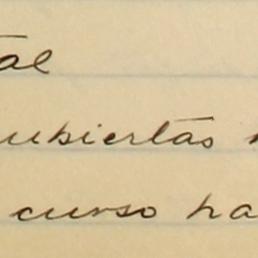 tal
cubiertas
curso ha